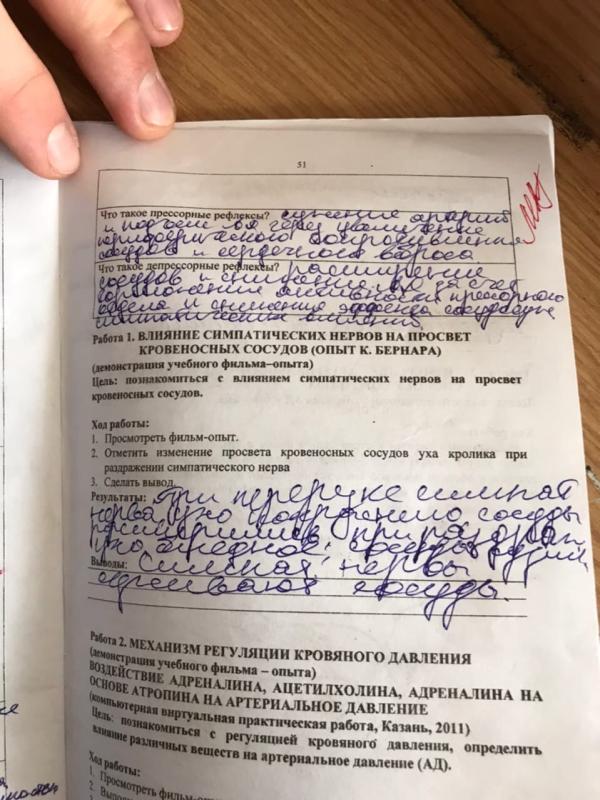 51
Что такое прессорные рефлексы? сужение артерий
и подъем через увеличение
периферического сопротивления
сосудов и сердечного выброса
Что такое депрессорные рефлексы? расширение
сосудов и снижение АД за счет
торможения активности прессорного
отдела и снижения
симпатических влияний
Работа 1. ВЛИЯНИЕ СИМПАТИЧЕСКИХ НЕРВОВ НА ПРОСВЕТ
КРОВЕНОСНЫХ СОСУДОВ (ОПЫТ К. БЕРНАРА)
(демонстрация учебного фильма–опыта)
Цель: познакомиться с влиянием симпатических нервов на просвет
кровеносных сосудов.
Ход работы:
1. Просмотреть фильм-опыт.
2. Отметить изменение просвета кровеносных сосудов уха кролика при
раздражении симпатического нерва
3. Сделать вывод.
Результаты: При перерезке симпат
нерва ухо покраснело сосуды
расширились, при раздраж
ухо бледное, сосуды
Выводы: Симпат. нервы
суживают сосуды.
Работа 2. МЕХАНИЗМ РЕГУЛЯЦИИ КРОВЯНОГО ДАВЛЕНИЯ
(демонстрация учебного фильма – опыта)
ВОЗДЕЙСТВИЕ АДРЕНАЛИНА, АЦЕТИЛХОЛИНА, АДРЕНАЛИНА НА
ОСНОВЕ АТРОПИНА НА АРТЕРИАЛЬНОЕ ДАВЛЕНИЕ
(компьютерная виртуальная практическая работа, Казань, 2011)
Цель: познакомиться с регуляцией кровяного давления, определить
влияние различных веществ на артериальное давление (АД).
Ход работы:
1. Просмотреть фильм-
2.